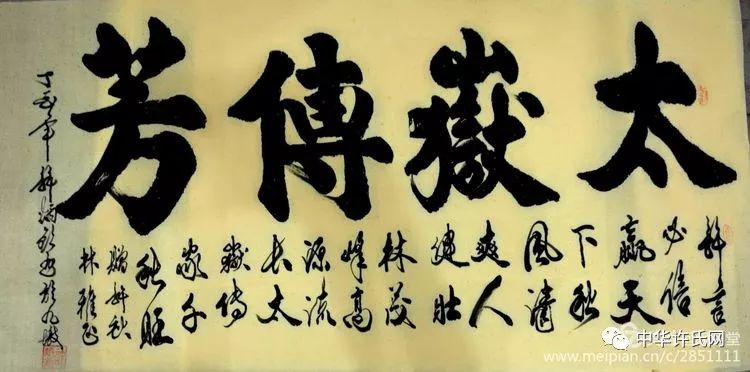 太嶽傳芳
許言
必信
赢天
下秋
風清
爽人
健壮
林茂
峰高
源流
长太
嶽传
家千
秋旺
赠許秋
林雅正
丁酉年許
书於
中华许氏网
堂
www.meipian.cn/c/2851111